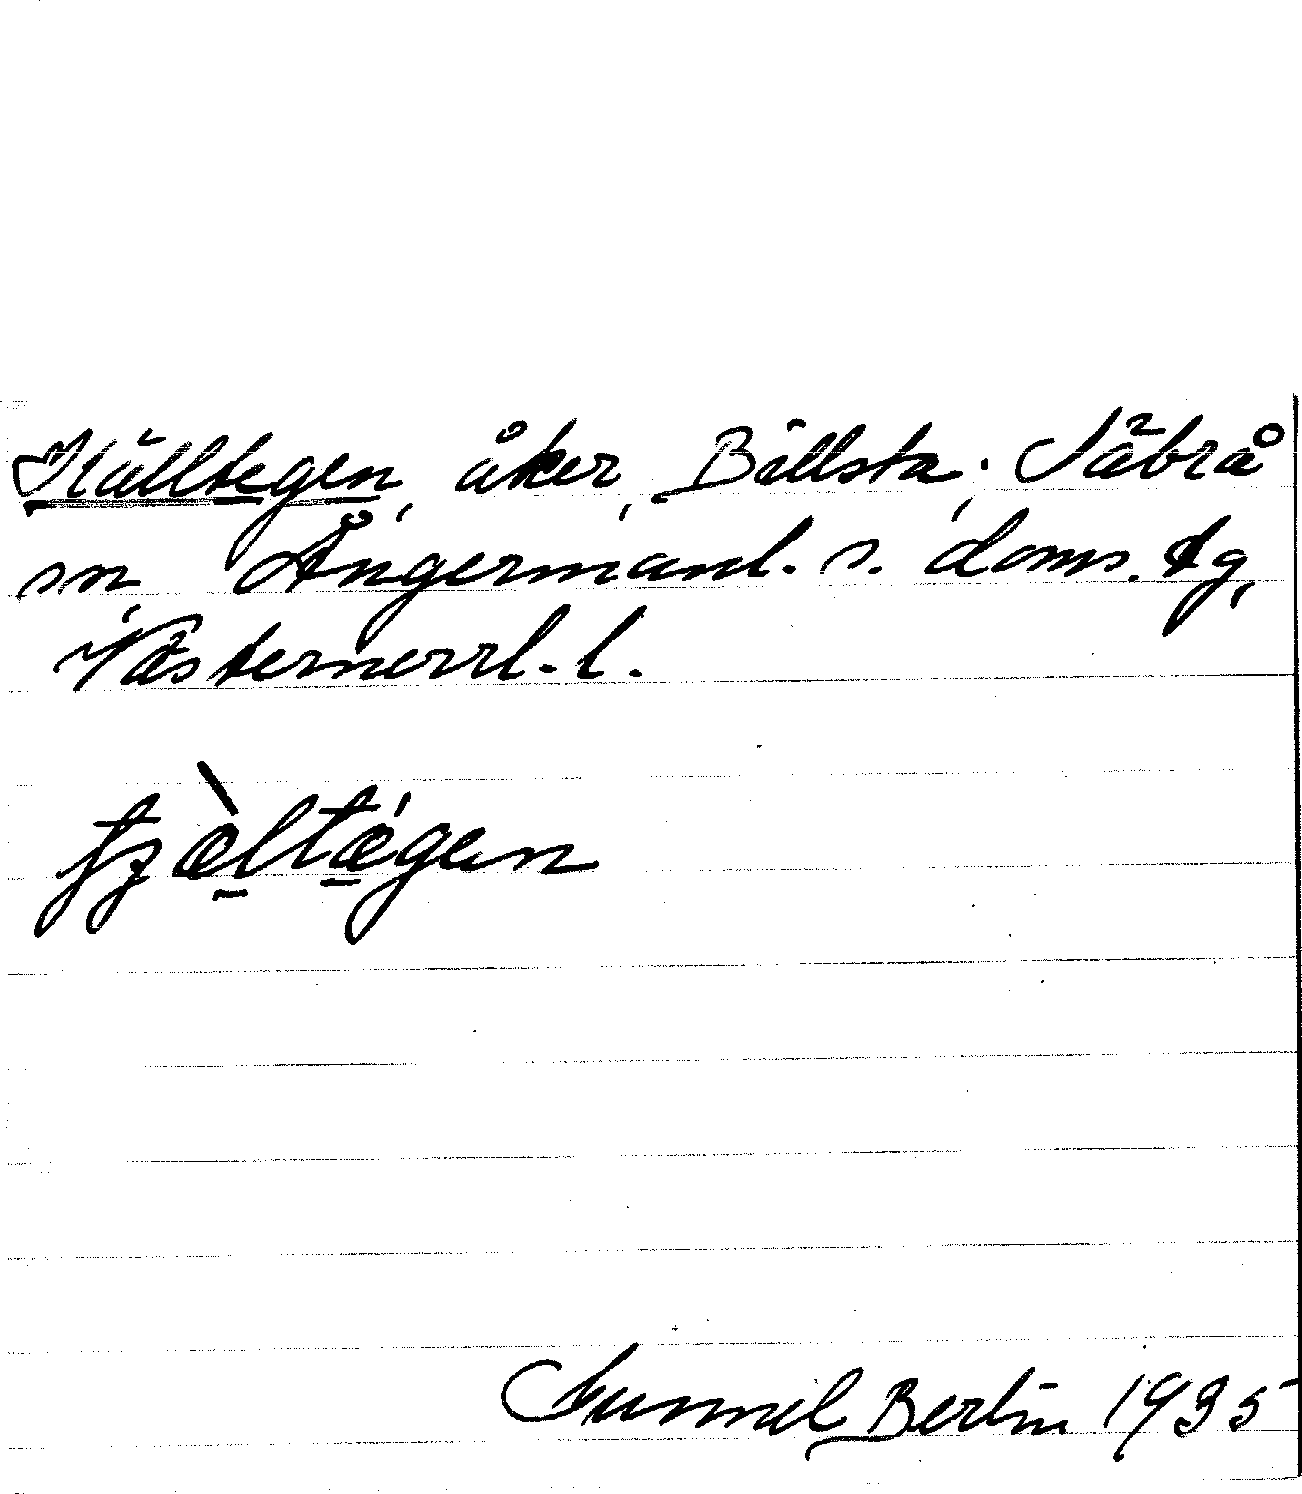 Källtegen, åker, Billsta, Säbrå
sn, Ångermanl. s. doms. tg,
Västernorrl. l.
Gunnil Berlin 1935